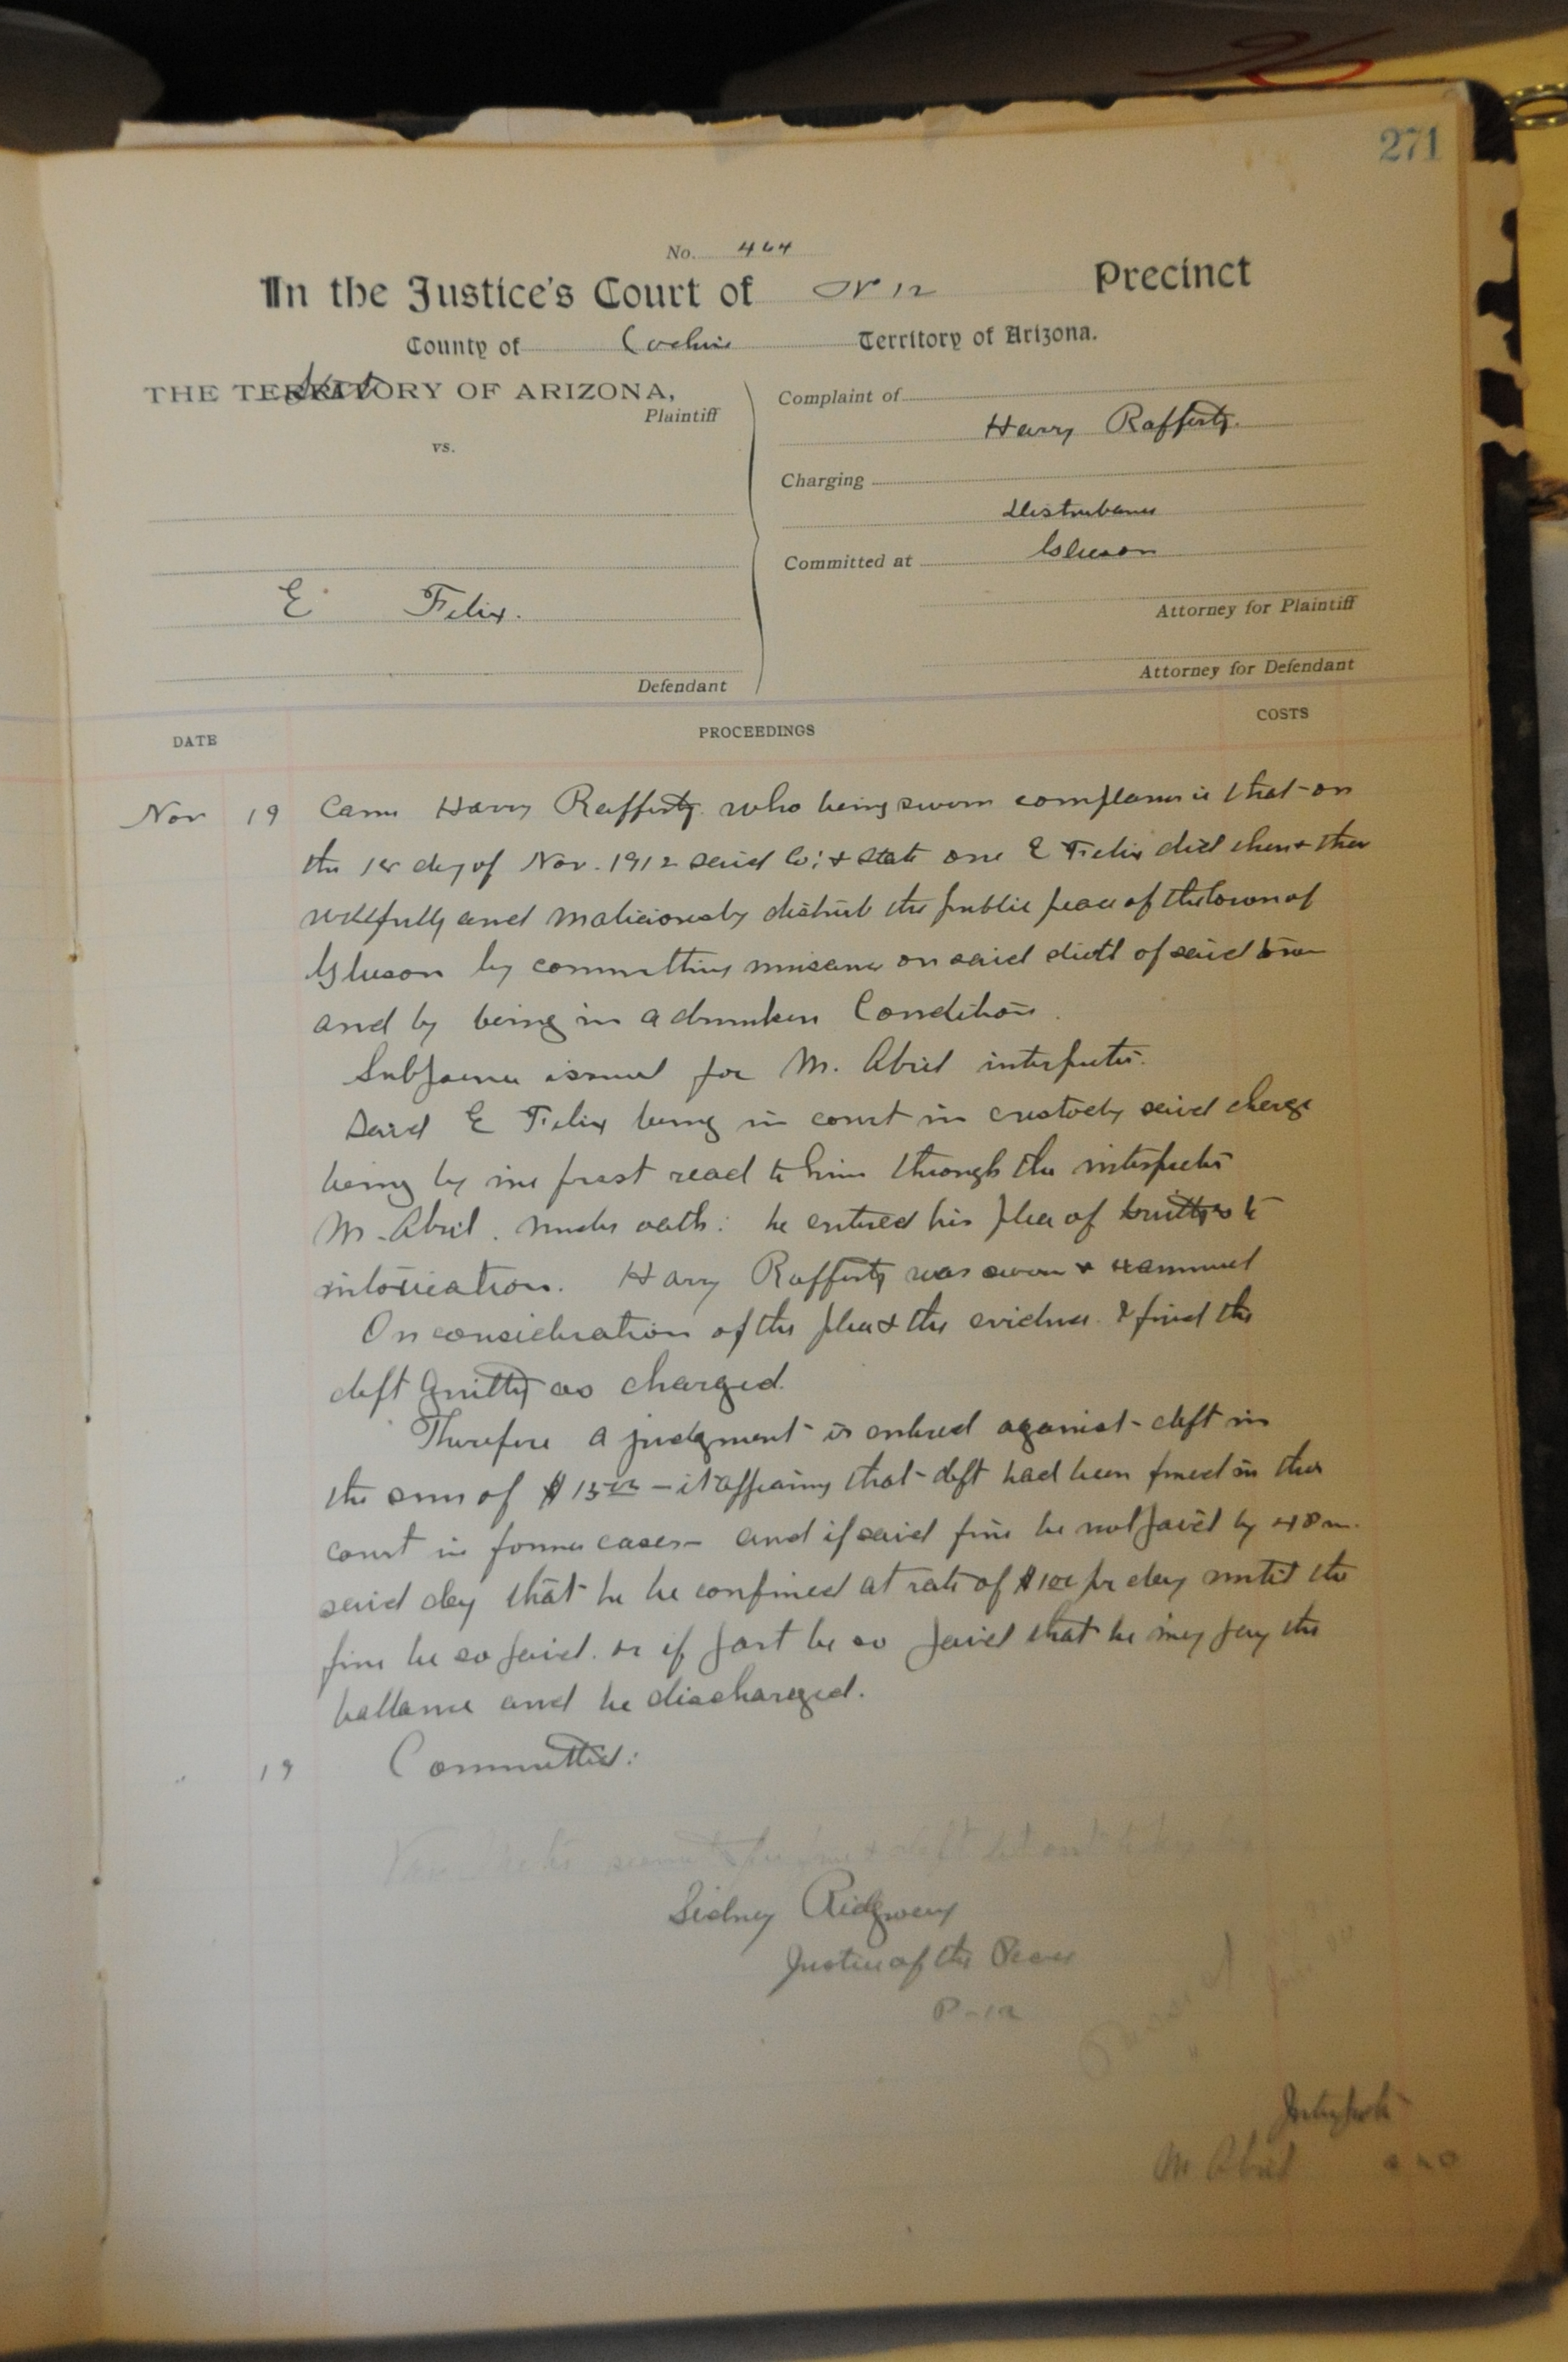 271
No. 464
In the Justice's Court of No 12 Precinct
County of Cochise Territory of Arizona.
THE TERRITORY OF ARIZONA,
State
Plaintiff
vs.
E Felix.
Defendant
Complaint of
Harry Rafferty.
Charging
Disturbance
Committed at Gleeson
Attorney for Plaintiff
Attorney for Defendant
DATE PROCEEDINGS COSTS
Nov 19 Came Harry Rafferty who being sworn complains that on
the day of Nov. 1912 said Co: & State one E Felix did then & there
wilfully and maliciously disturb the public peace of the town of
Gleeson by committing nuisance on said of said town
and by being in a drunken Condition.
Subpoena issued for M. Abril interpreter.
Said E Felix being in court in custody said charge
being by me first read to him through the interpreter
M. Abril. under oath: he entered his plea of Guilty to
intoxication. Harry Rafferty was sworn & examined
On consideration of the plea & the evidence I find the
deft Guilty as charged.
Therefore a judgment is entered against deft in
the sum of $15 00 — it appearing that deft had been fined in this
court in former cases — and if said fine be not paid by
said day that he be confined at rate of $1 00 pr day until the
fine be so paid. or if part be so paid that he may pay the
ballance and be discharged.
" 19 Committed:
Sidney Ridgway
Justice of the Peace
P-12
Interpreter
M Abril